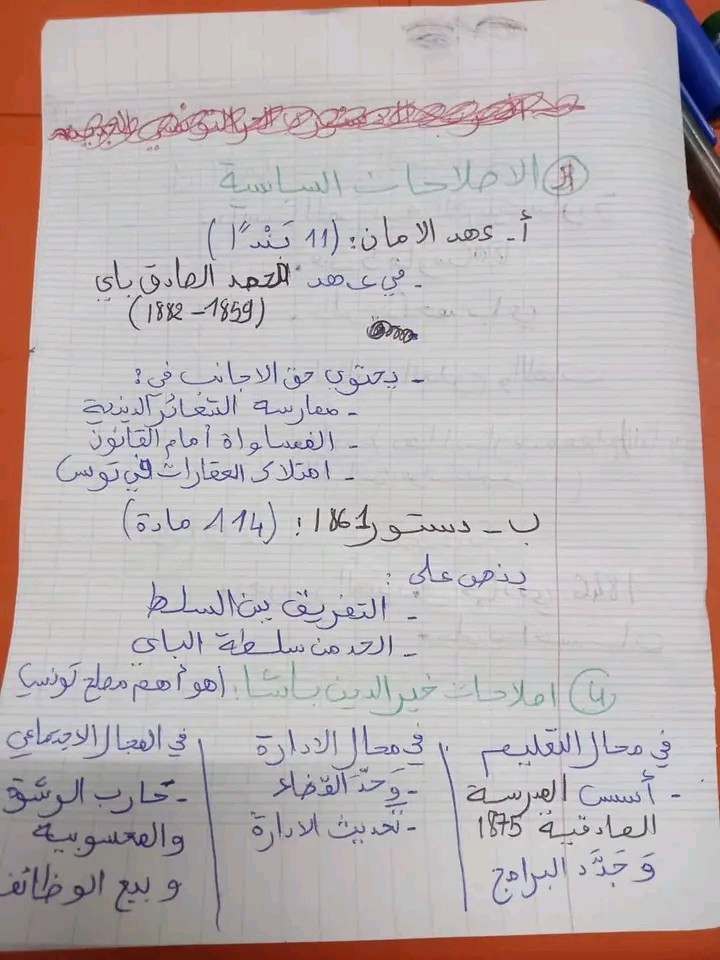 الاصلاحات السياسية
أ - عهد الامان: (11 بَنْدًا)
- في عهد محمد الصادق باي
(1859 - 1882)
- يحتوي حق الاجانب في:
- ممارسة الشعائر الدينية
- المساواة أمام القانون
- امتلاك العقارات في تونس
ب - دستور 1861: (114 مادة)
ينص على:
- التفريق بين السلط
- الحد من سلطة الباي
4 اصلاحات خير الدين باشا: هو أهم مصلح تونسي
في مجال التعليم
- أسس المدرسة
الصادقية 1875
وَجَدَّد البرامج
في مجال الادارة
- وَحَّدَ القضاء
- تحديث الادارة
في المجال الاجتماعي
- حارب الرشوة
والمحسوبية
و بيع الوظائف